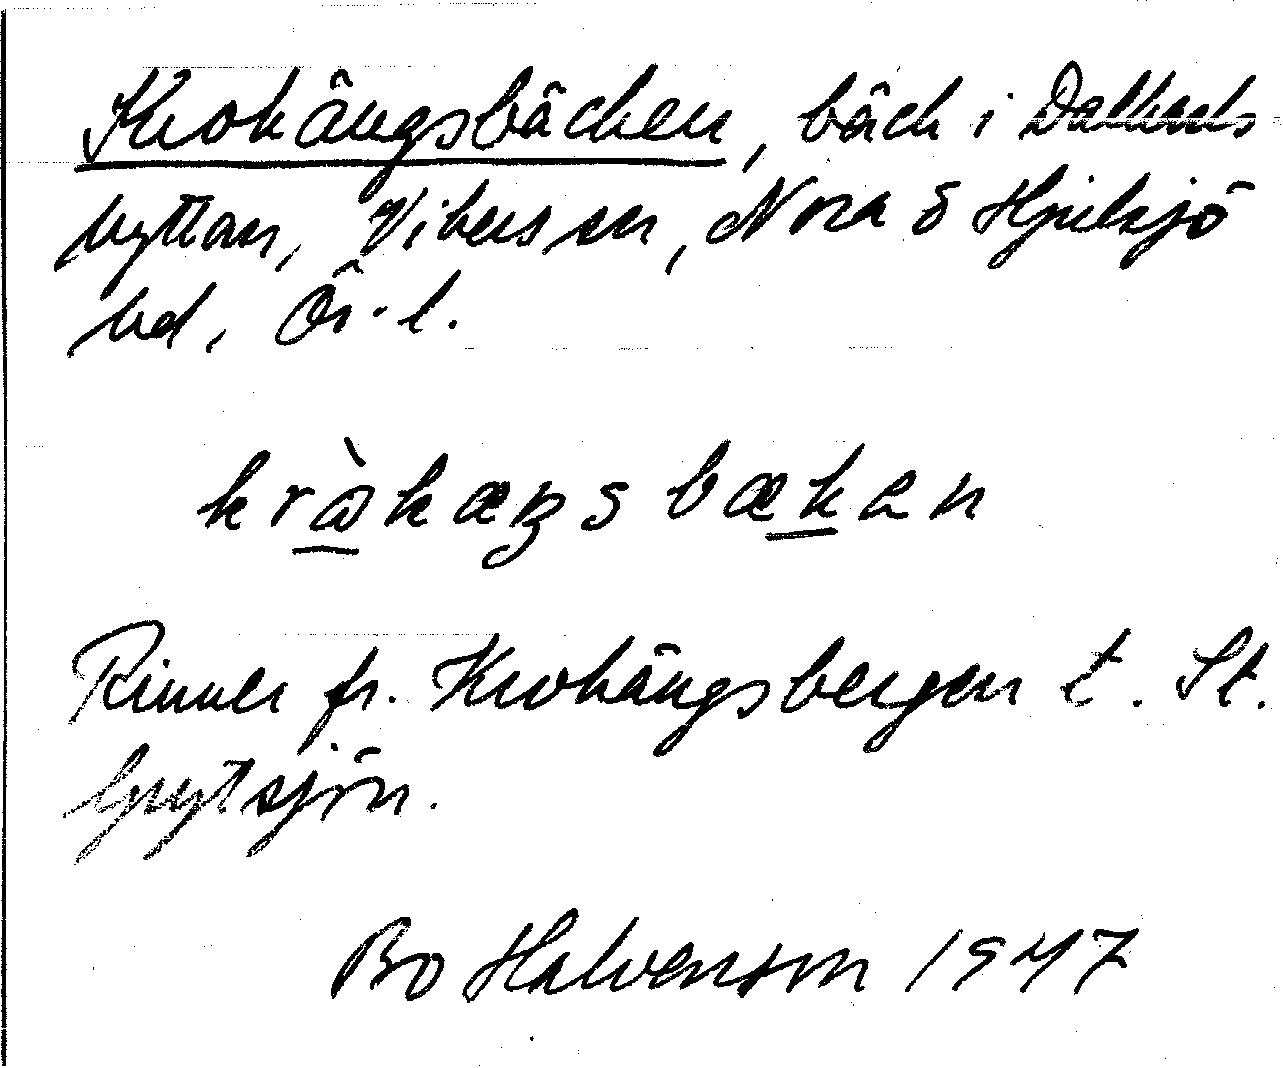 Krokängsbäcken, bäck i Dalkarls
hyttan, Vikers sn, Nora o Hjulsjö
hd, Ör. l.
kràkæŋsbækan
Rinner fr. Krokängsbergen t. St.
Grytsjön.
Bo Halvenson 1947